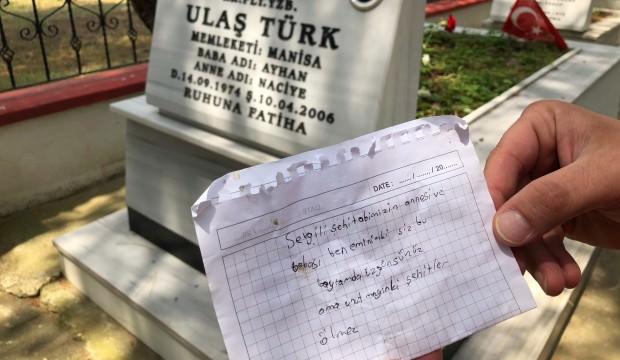 ULAŞ TÜRK
MEMLEKETİ: MANİSA
BABA ADI: AYHAN
ANNE ADI: NACİYE
D.14.09.1974 Ş.10.04.2006
RUHUNA FATİHA
DATE: ....../....../20......
Sevgili şehit abimizin annesi ve
babası ben eminimki siz bu
bayramda üzgünsünüz
ama unutmayınki şehitler
ölmez